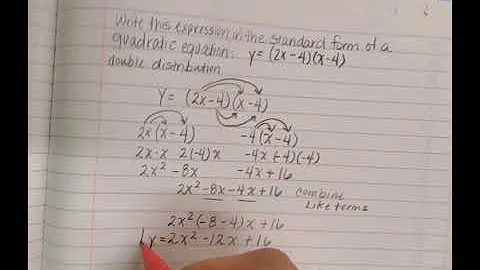 Write this expression in the standard form of a
quadratic equation: y=(2x-4)(x-4)
double distribution
y= (2x-4)(x-4)
2x(x-4) -4(x-4)
2x·x 2(-4)x -4x(-4)(-4)
2x² -8x -4x+16
2x²-8x-4x+16 combine
like terms
2x²(-8-4)x+16
y=2x²-12x+16